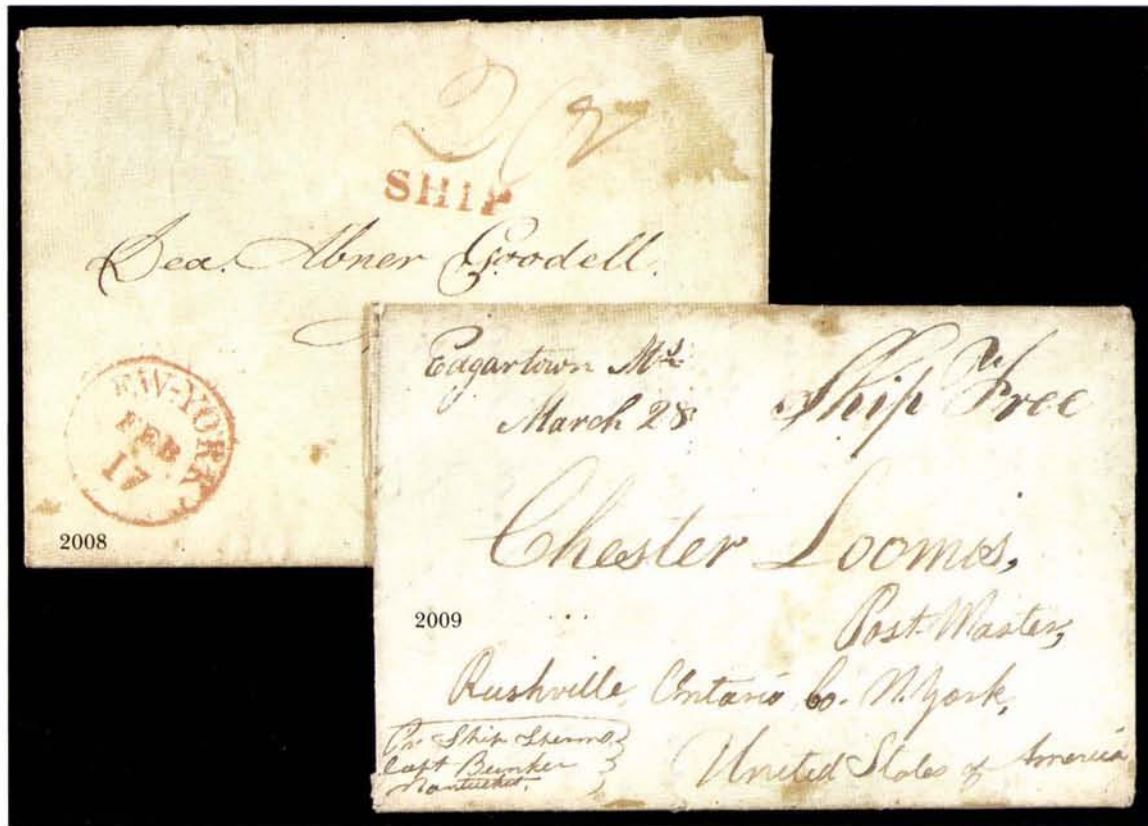 SHIP
Dea. Abner Goodell.
EW-YORK
FEB
17
2008
Edgartown Ms
March 28
Ship Free
Chester Loomis,
2009
Post Master,
Rushville, Ontario Co. N. York,
United States of America
Pr Ship
Capt Bunker
Nantucket.